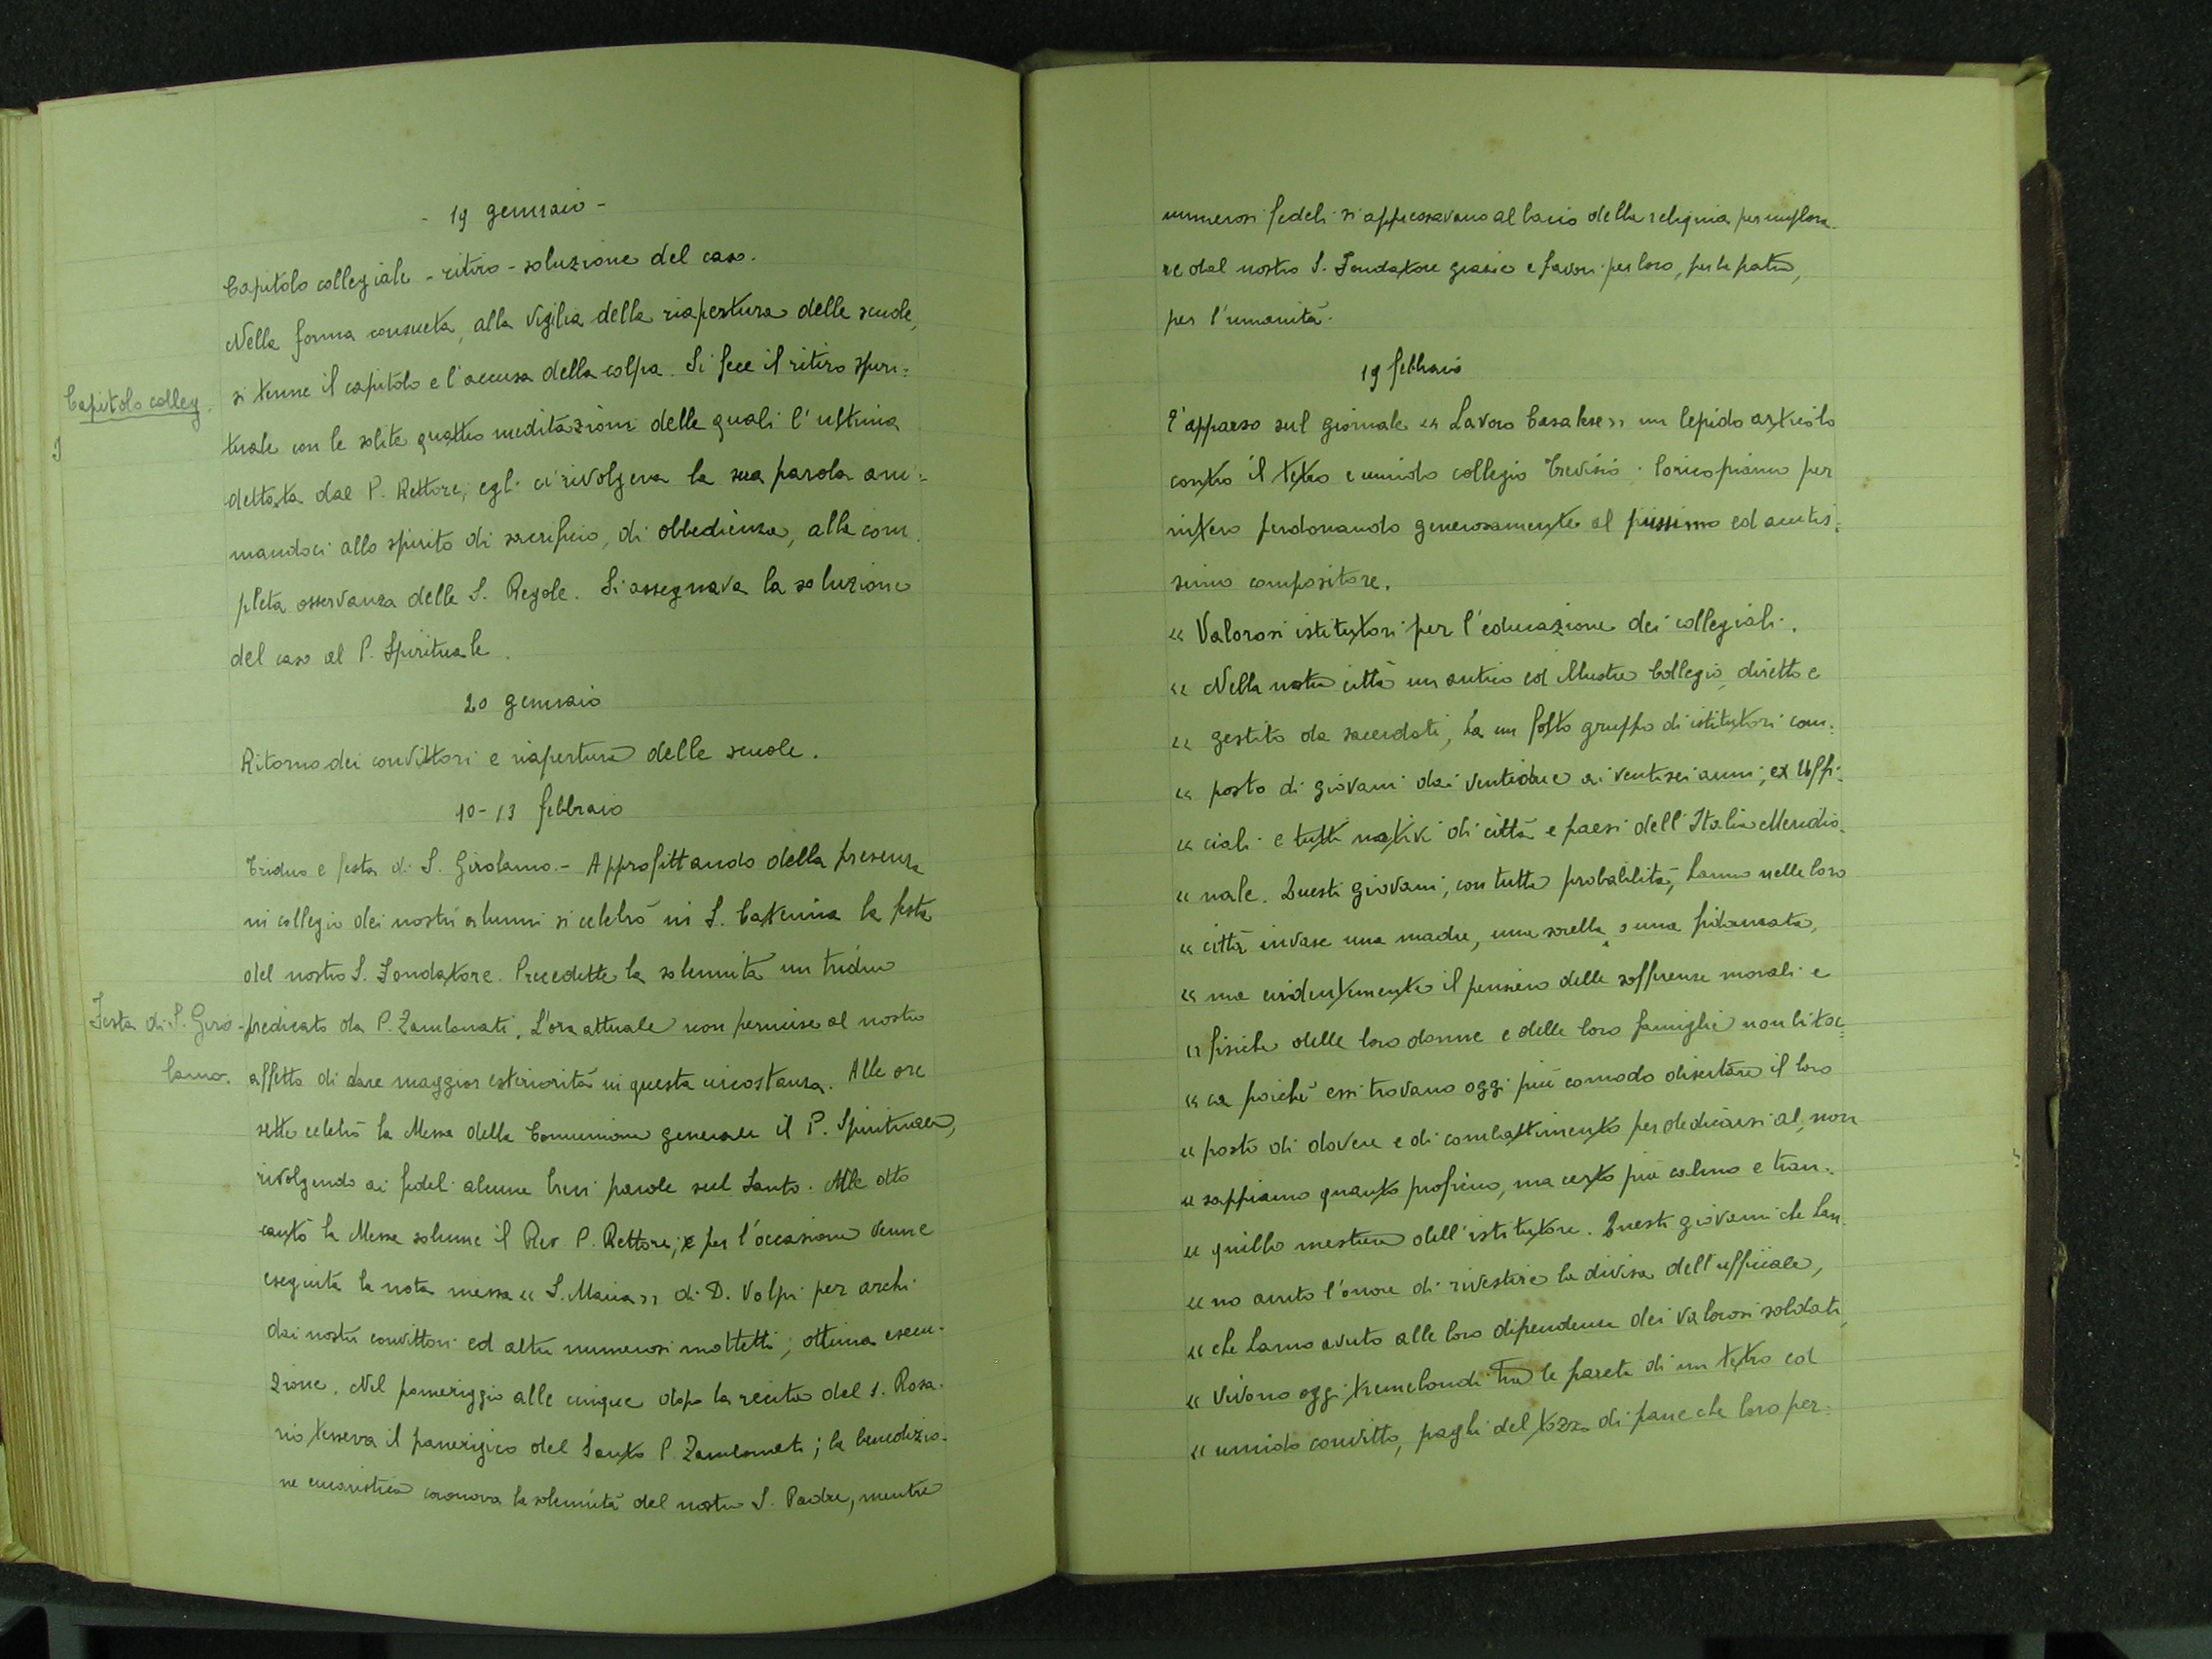 - 19 gennaio -
Capitolo collegiale - ritiro - soluzione del caso.
Nella forma consueta, alla vigilia della riapertura delle scuole,
Capitolo colleg.
si tenne il capitolo e l'accusa della colpa. Si fece il ritiro spiri=
tuale con le solite quattro meditazioni delle quali l'ultima
dettata dal P. Rettore; egli ci rivolgeva la sua parola ani=
mandoci allo spirito di sacrificio, di obbedienza, alla com
pleta osservanza delle S. Regole. Si assegnava la soluzione
del caso al P. Spirituale.
20 gennaio
Ritorno dei convittori e riapertura delle scuole.
10-13 febbraio
Triduo e festa di S. Girolamo. - Approfittando della presenza
in collegio dei nostri alunni si celebrò in S. Caterina la festa
del nostro S. Fondatore. Precedette la solennità un triduo
Festa di S. Giro-
lamo.
predicato da P. Zambonati. L'ora attuale non permise al nostro
affetto di dare maggior esteriorità in questa circostanza. Alle ore
sette celebrò la Messa della Comunione generale il P. Spirituale,
rivolgendo ai fedeli alcune brevi parole sul Santo. Alle otto
cantò la Messa solenne il Rev. P. Rettore; e per l'occasione venne
eseguita la nota messa « S. Maria » di D. Volpi per archi
dai nostri convittori ed altri numerosi mottetti; ottima esecu-
zione. Nel pomeriggio alle cinque dopo la recita del S. Rosa-
rio tesseva il panegirico del Santo P. Zambonati; la benedizio-
ne eucaristica coronava la solennità del nostro S. Padre, mentre
numerosi fedeli si appressavano al bacio della reliquia per implora-
re dal nostro S. Fondatore grazie e favori per loro, per la patria,
per l'umanità.
19 febbraio
E' apparso sul giornale « Lavoro Casalese » un lepido articolo
contro il tetro e umido collegio Trevisio. Lo ricopiamo per
intero perdonando generosamente al piissimo ed acutis=
simo compositore.
« Valorosi istitutori per l'educazione dei collegiali.
« Nella nostra città un antico ed illustre Collegio, diretto e
« gestito da sacerdoti, ha un folto gruppo di istitutori com=
« posto di giovani dai ventidue ai ventisei anni, ex Uffi=
« ciali e tutti nativi di città e paesi dell'Italia Meridio-
« nale. Questi giovani, con tutta probabilità, hanno nelle loro
« città invase una madre, una sorella o una fidanzata,
« ma evidentemente il pensiero delle sofferenze morali e
« fisiche delle loro donne e delle loro famiglie non li toc=
« ca poiché essi trovano oggi più comodo disertare il loro
« posto di dovere e di combattimento per dedicarsi al, non
« sappiamo quanto proficuo, ma certo più calmo e tran=
« quillo mestiere dell'istitutore. Questi giovani che han
« no avuto l'onore di rivestire la divisa dell'ufficiale,
« che hanno avuto alle loro dipendenze dei valorosi soldati,
« vivono oggi tremebondi tra le pareti di un tetro ed
« umido convitto, paghi del tozzo di pane che loro per=